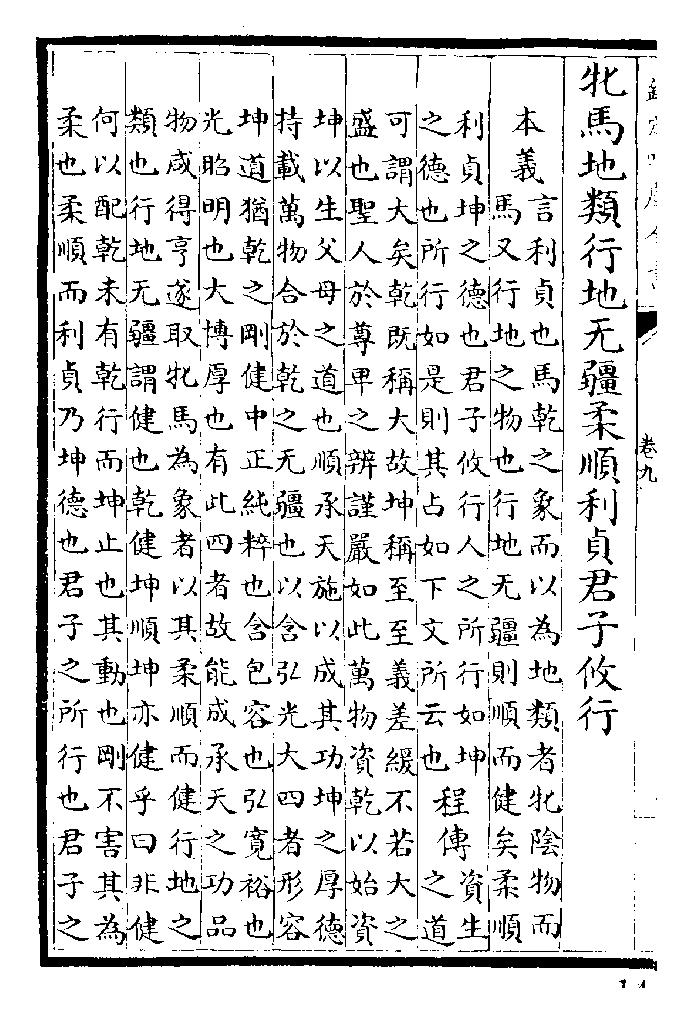 欽定四庫全書
卷九
牝馬地類行地无疆柔順利貞君子攸行
本義
言利貞也馬乾之象而以為地類者牝陰物而
馬又行地之物也行地无疆則順而健矣柔順
利貞坤之德也君子攸行人之所行如坤
之德也所行如是則其占如下文所云也
程傳
資生
之道
可謂大矣乾既稱大故坤稱至至義差緩不若大之
盛也聖人於尊卑之辨謹嚴如此萬物資乾以始資
坤以生父母之道也順承天施以成其功坤之厚德
持載萬物合於乾之无疆也以含弘光大四者形容
坤道猶乾之剛健中正純粹也含包容也弘寬裕也
光昭明也大博厚也有此四者故能成承天之功品
物咸得亨遂取牝馬為象者以其柔順而健行地之
類也行地无疆謂健也乾健坤順坤亦健乎曰非健
何以配乾未有乾行而坤止也其動也剛不害其為
柔也柔順而利貞乃坤德也君子之所行也君子之